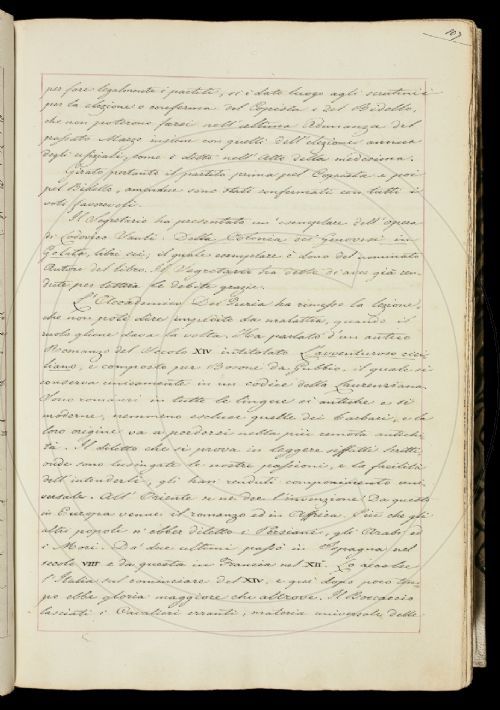 107
per fare legalmente i partiti, si è dato luogo agli scrutini
per la elezione o conferma del Copista e del Bidello,
che non poterono farsi nell'ultima Adunanza del
passato Marzo insieme con quelli dell'elezione annua
degli ufiziali, come è detto nell'Atto della medesima.
Girato pertanto il partito prima pel Copista e poi
pel Bidello, amendue sono stati confermati con tutti i
voti favorevoli.
Il Segretario ha presentato un' esemplare dell'opera
di Lodovico Sauli. Della Colonia dei Genovesi in
Galata, libri sei; il quale esemplare è dono del nominato
Autore del libro. Il Segretario ha detto di aver già ren-
dute per lettera le debite grazie.
L'Accademico Del Furia ha rimesso la lezione,
che non potè dire impedito da malattia, quando il
ruolo gliene dava la volta. Ha parlato d'un antico
Romanzo del Secolo XIV intitolato L'avventuroso cici-
liano, e composto per Bosone da Gubbio, il quale si
conserva unicamente in un codice della Laurenziana.
Sono romanzi in tutte le lingue sì antiche e sì
moderne, nemmeno escluse quelle dei barbari, e la
loro origine va a perdersi nella più remota antichi-
tà. Il diletto che si prova in leggere siffatti scritti,
onde sono lusingate le nostre passioni, e la facilità
dell'intenderli, gli han renduti componimento uni-
versale. All'Oriente se ne dee l'invenzione: Da questo
in Europa venne il romanzo ed in Affrica. Più che gli
altri popoli n'ebber diletto i Persiani, gli Arabi, ed
i Mori. Da' due ultimi passò in Ispagna nel
secolo VIII e da questa in Francia nel XII. Lo accolse
l'Italia sul cominciare del XIV, e qui dopo poco tem-
po ebbe gloria maggiore che altrove. Il Boccaccio
lasciati i Cavalieri erranti, materia universale delle